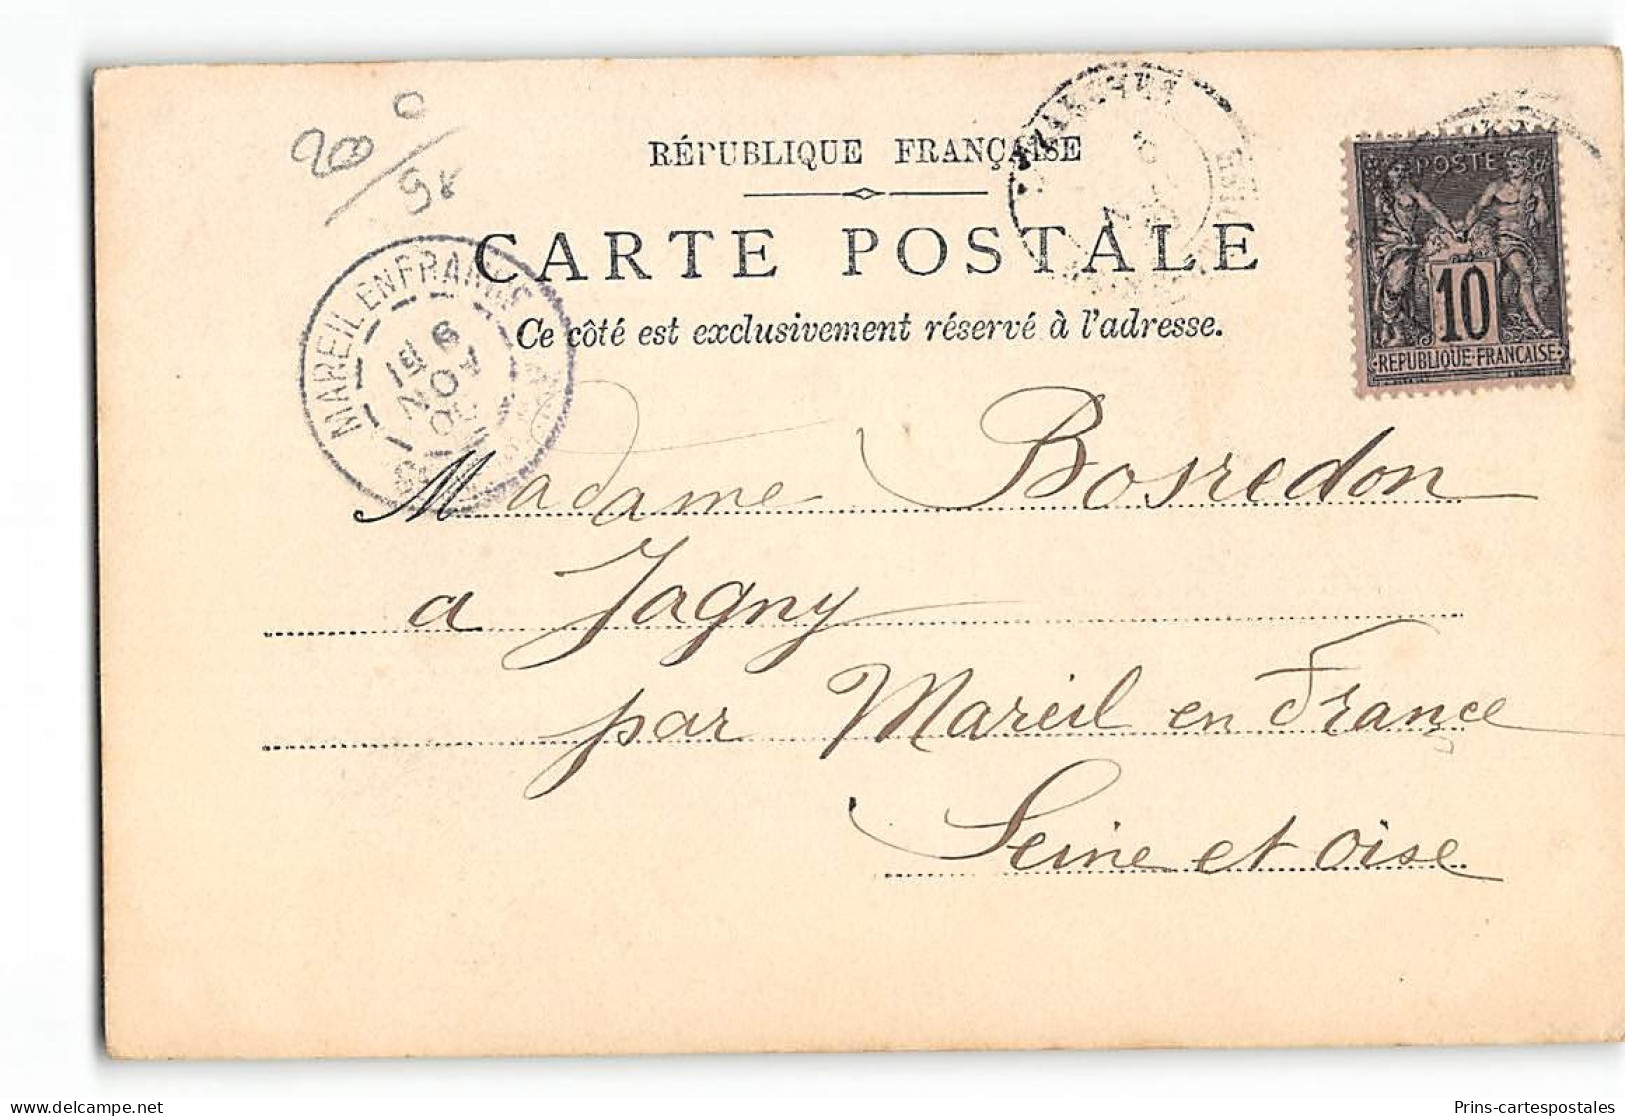 200
0
98
RÉPUBLIQUE FRANÇAISE
CARTE POSTALE
Ce côté est exclusivement réservé à l'adresse.
POSTE
10
REPUBLIQUE FRANÇAISE
MAREIL EN FRANCE
6
NOV
Madame Bosredon
a Jagny
par Mareil en France
Seine et Oise
Prins-cartespostales